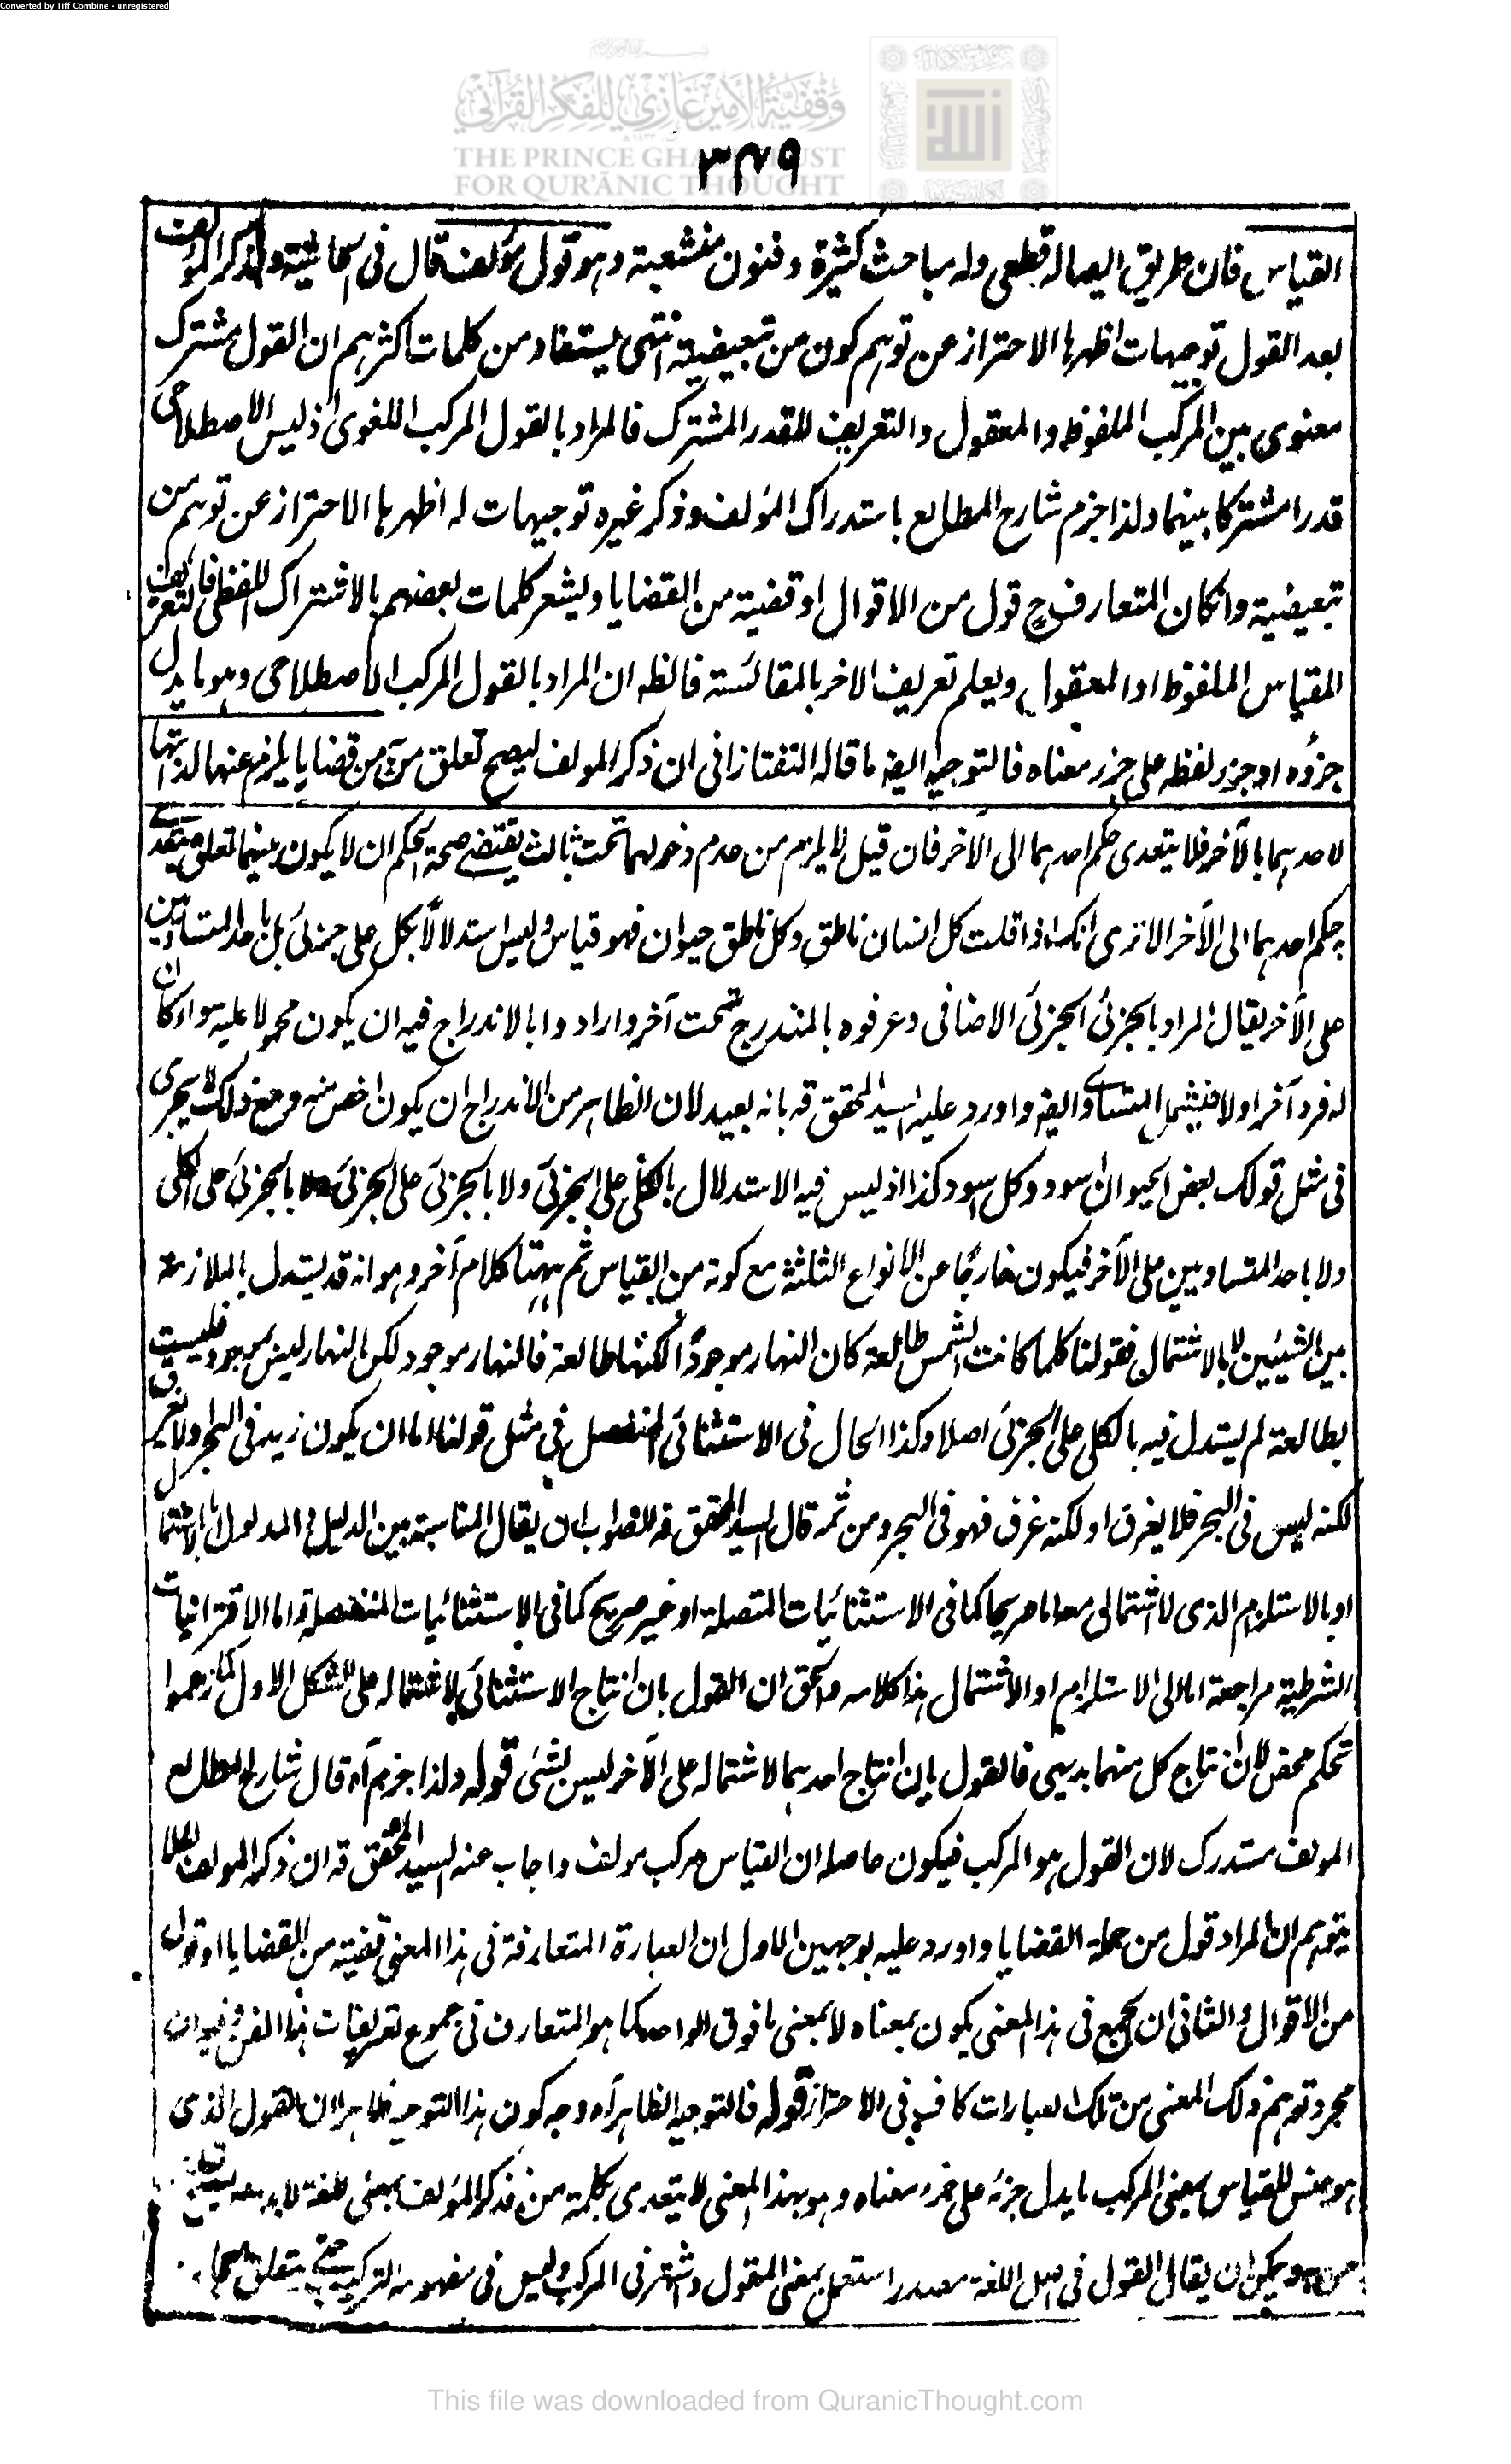 Converted by Tiff Combine - unregistered
وقفية الأمير غازي للفكر القرآني
THE PRINCE GHAZI TRUST
FOR QUR'ĀNIC THOUGHT
۳۴۹
القياس فان طريق ايصاله قطعى وله مباحث كثيرة وفنون منشعبة وهو قول مؤلف قال فى الحاشية ولذكر المؤلف
بعد القول توجيهات اظهرها الاحتراز عن توهم كون من تبعيضية انتهى يستفاد من كلمات اكثرهم ان القول مشترك
معنوى بين المركب الملفوظ والمعقول والتعريف للقدر المشترك فالمراد بالقول المركب اللغوى اذ ليس الاصطلاحى
قدرا مشتركا بينهما ولذا جزم شارح المطالع باستدراك المؤلف وذكر غيره توجيهات له اظهرها الاحتراز عن توهم من
تبعيضية وانكان المتعارف ح قول من الاقوال او قضية من القضايا ويشعر كلمات بعضهم بالاشتراك اللفظى فالتعريف
للقياس الملفوظ او المعقول ويعلم تعريف الاخر بالمقائسة فالظه ان المراد بالقول المركب الاصطلاحى وهو ما يدل
جزؤه او جزء لفظه على جزء معناه فالتوجيه اليضه ما قاله التفتازانى ان ذكر المولف ليصح تعلق من من قضايا يلزم عنها لذاتها
لاحدهما بالآخر فلا يتعدى حكم احدهما الى الآخر فان قيل لا يلزم من عدم دخولهما تحت ثالث يقتضى صحة الحكم ان لا يكون بينهما تعلق يتعدى
به حكم احدهما الى الآخر الا ترى انك اذا قلت كل انسان ناطق وكل ناطق حيوان فهو قياس وليس استدلالا بكل على جزئى بل باحد المتساويين
على الآخر يقال المراد بالجزئى الجزئى الاضافى وعرفوه بالمندرج تحت آخر وارادوا بالاندراج فيه ان يكون محمولا عليه سواء كان
له فرد آخر او لا فيشمل المتساوى اليضه واورد عليه السيد المحقق قه بانه بعيد لان الظاهر من الاندراج ان يكون اخص منه ومع ذلك لا يجرى
فى مثل قولك بعض الحيوان اسود وكل اسود كذا اذ ليس فيه الاستدلال بالكلى على الجزئى ولا بالجزئى على الجزئى ولا بالجزئى على الكلى
ولا باحد المتساويين على الآخر فيكون خارجا عن الانواع الثلثة مع كونه من القياس ثم ههنا كلام آخر وهو انه قد يستدل بالملازمة
بين الشيئين لا بالاشتمال فقولنا كلما كانت الشمس طالعة كان النهار موجودا لكنها طالعة فالنهار موجود لكن النهار ليس بموجود فليست
بطالعة لم يستدل فيه بالكلى على الجزئى اصلا وكذا الحال فى الاستثنائى المنفصل فى مثل قولنا اما ان يكون زيد فى البحر ولا يغرق
لكنه ليس فى البحر فلا يغرق او لكنه غرق فهو فى البحر ومن ثمه قال السيد المحقق قه الصواب ان يقال المناسبة بين الدليل والمدلول بالاشتمال
او بالاستلزام الذى لا اشتمال معه اما صريحا كما فى الاستثنائيات المتصلة او غير صريح كما فى الاستثنائيات المنفصلة واما الاقترانيات
الشرطية مراجعة اما الى الاستلزام او الاشتمال هذا كلامه والحق ان القول بان انتاج الاستثنائى لاشتماله على الشكل الاول كما زعموا
تحكم محض لان انتاج كل منهما بديهى فالقول بان انتاج احدهما لاشتماله على الآخر ليس بشئ قوله ولذا جزم آه قال شارح المطالع
المولف مستدرك لان القول هو المركب فيكون حاصله ان القياس مركب مولف واجاب عنه السيد المحقق قه ان ذكر المولف لئلا
يتوهم ان المراد قول من جملة القضايا واورد عليه بوجهين الاول ان العبارة المتعارفة فى هذا المعنى قضية من القضايا او قول
من الاقوال والثانى ان الجمع فى هذا المعنى يكون بمعناه لا بمعنى ما فوق الواحد كما هو المتعارف فى جموع تعريفات هذا الفن وفيه ان
مجرد توهم ذلك المعنى من تلك العبارات كاف فى الاحتراز قوله فالتوجيه الظاهر آه وجه كون هذا التوجيه ظاهرا ان القول الذى
هو جنس للقياس بمعنى المركب ما يدل جزئه على جزء معناه وهو بهذا المعنى لا يتعدى بكلمة من فذكر المؤلف بمعنى للغة
ويمكن ان يقال القول فى اصل اللغة مصدر استعمل بمعنى المقول واشتهر فى المركب وليس فى مفهومه التركيب حتى يتعلق
This file was downloaded from QuranicThought.com